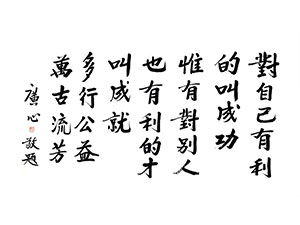 對自己有利
的叫成功
惟有對別人
也有利的才
叫成就
多行公益
萬古流芳
廣心敬題